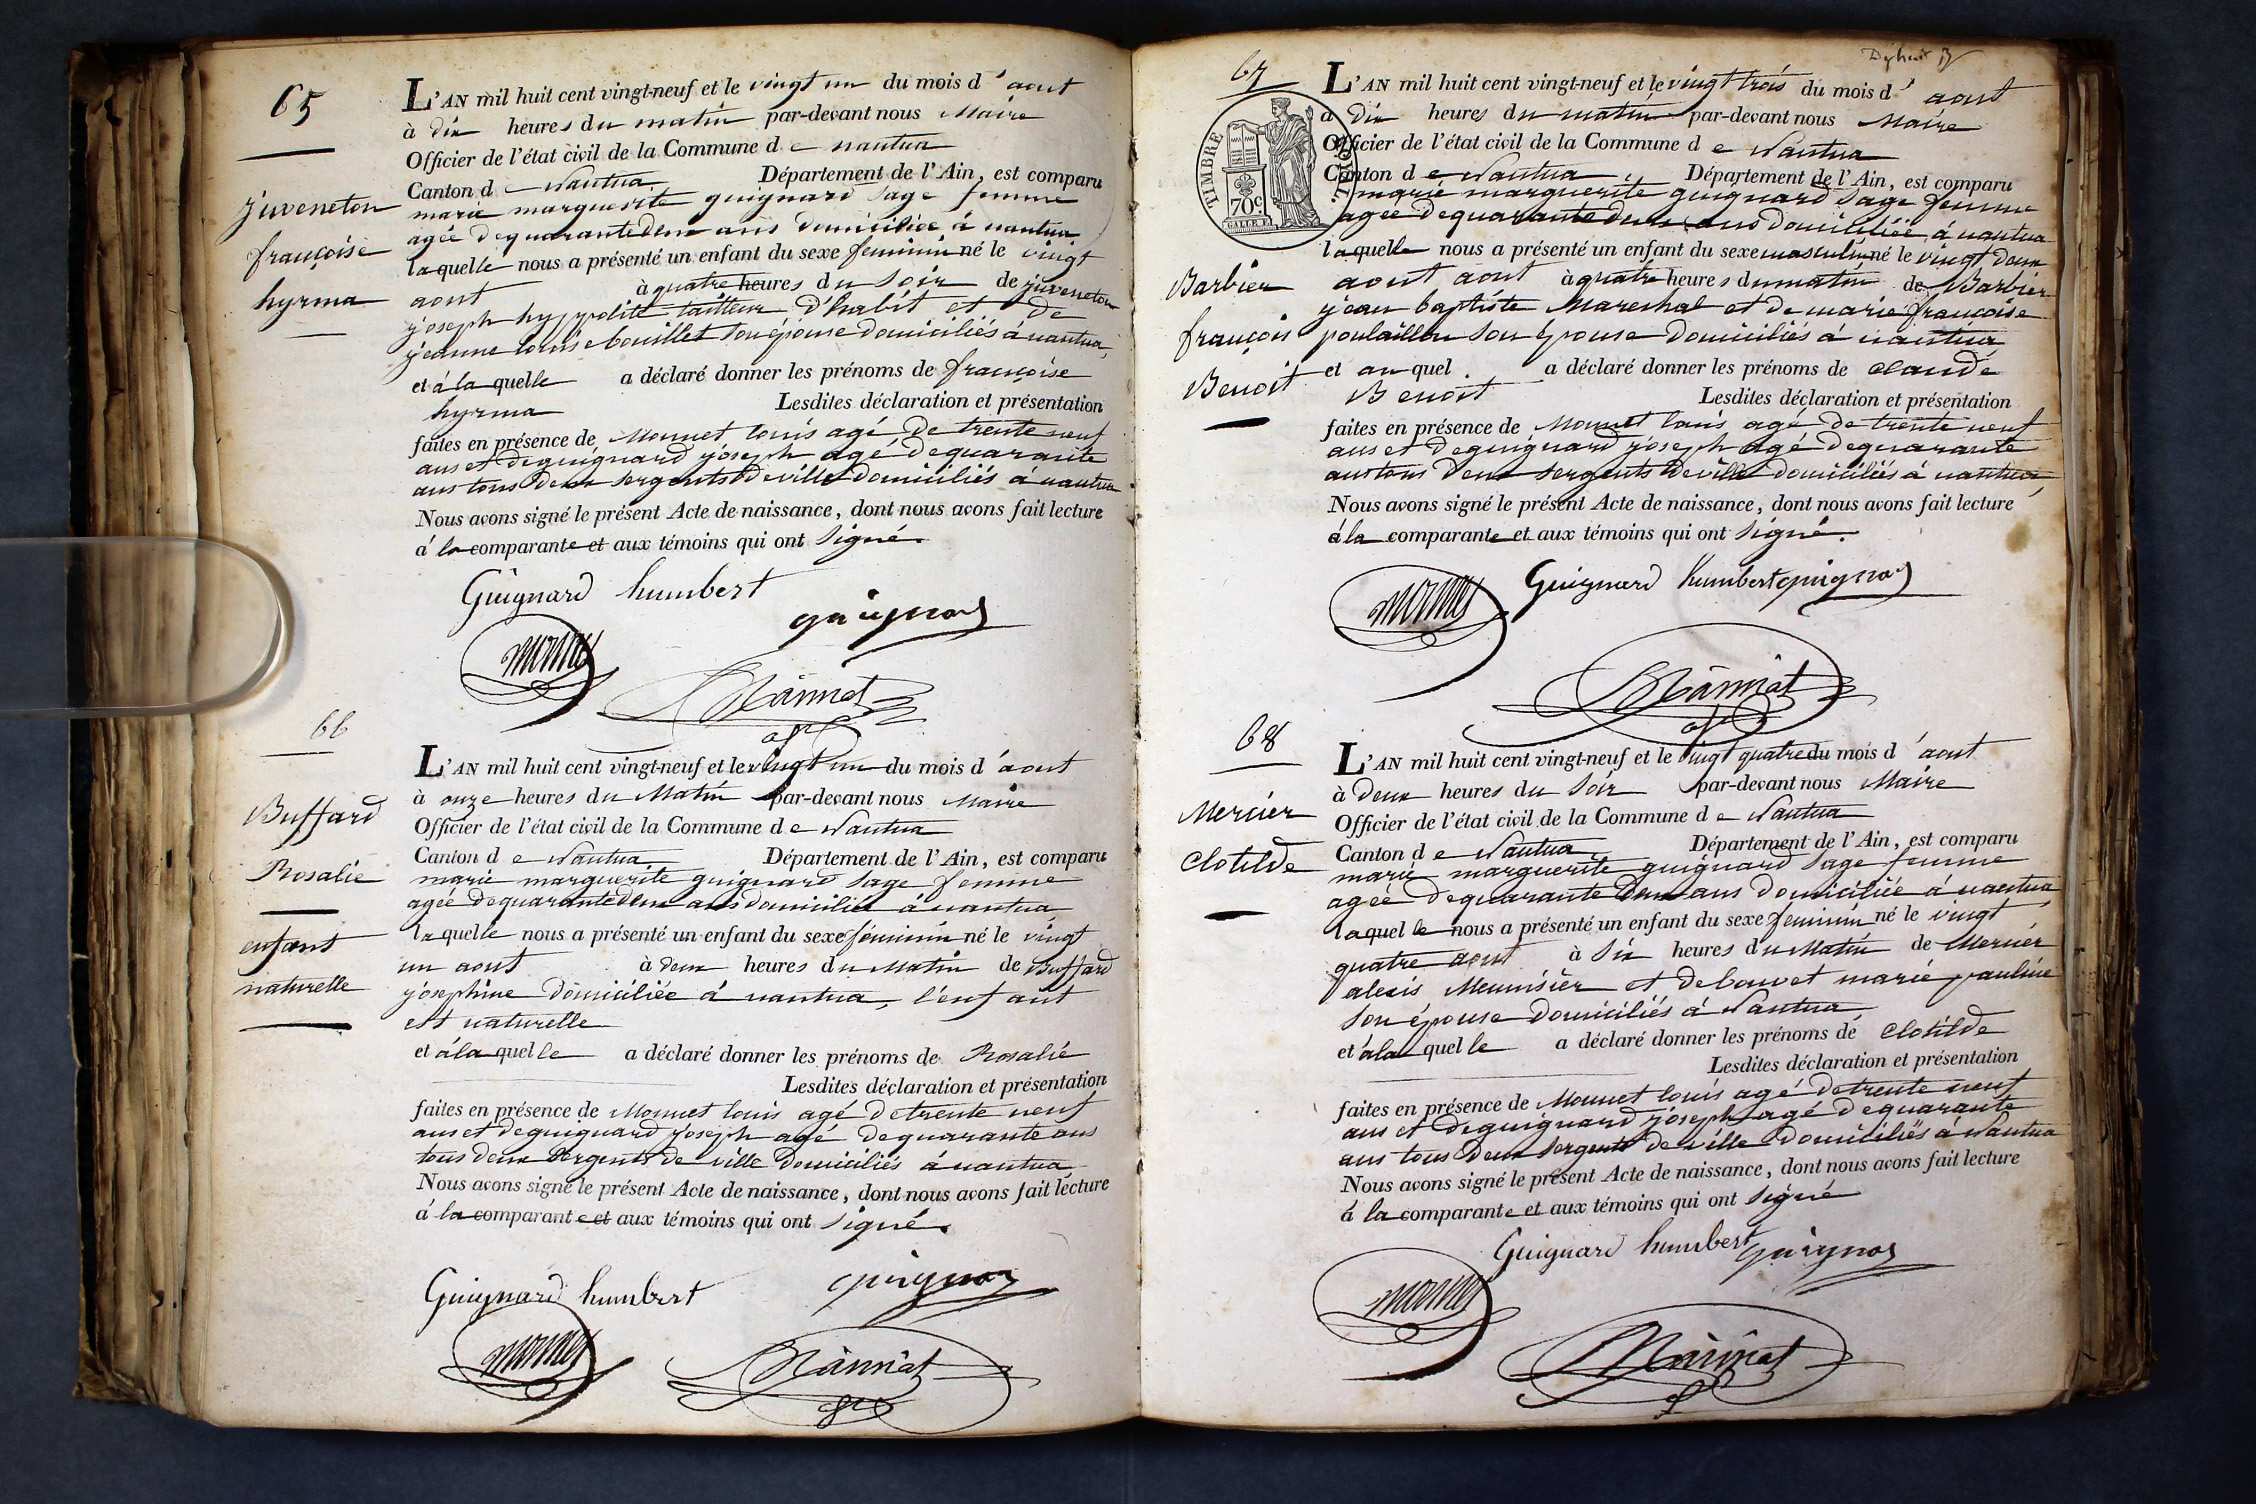 65
juveneton
françoise
hyrma
L'AN mil huit cent vingt-neuf et le vingt un du mois d'aout
à dix heures du matin par-devant nous Maire
Officier de l'état civil de la Commune de nantua
Canton de Nantua Département de l'Ain, est comparu
marie marguerite guignard sage femme
agée de quarante deux ans domiciliée à nantua
laquelle nous a présenté un enfant du sexe feminin né le vingt
aout à quatre heures du soir de juveneton
joseph hyppolite tailleur d'habit et de
jeanne louise bouillet son épouse domiciliés à nantua,
et à la quelle a déclaré donner les prénoms de françoise
hyrma Lesdites déclaration et présentation
faites en présence de Monnet louis agé de trente neuf
ans et de guignard joseph agé de quarante
ans tous deux sergents de ville domiciliés à nantua
Nous avons signé le présent Acte de naissance, dont nous avons fait lecture
à la comparante et aux témoins qui ont signé.
Guignard humbert
guignard
monnet
66
Buffard
Rosalie
enfant
naturelle
L'AN mil huit cent vingt-neuf et le vingt un du mois d'aout
à onze heures du Matin par-devant nous Maire
Officier de l'état civil de la Commune de Nantua
Canton de Nantua Département de l'Ain, est comparu
marie marguerite guignard sage femme
agée de quarante deux ans domiciliée à nantua
laquelle nous a présenté un enfant du sexe féminin né le vingt
un aout à deux heures du Matin de Buffard
josephine domiciliée à nantua, l'enfant
est naturelle
et à la quelle a déclaré donner les prénoms de Rosalie
Lesdites déclaration et présentation
faites en présence de Monnet louis agé de trente neuf
ans et de guignard joseph agé de quarante ans
tous deux sergents de ville domiciliés à nantua
Nous avons signé le présent Acte de naissance, dont nous avons fait lecture
à la comparante et aux témoins qui ont signé.
Guignard humbert
guignard
monnet
67
TIMBRE ROYAL.
70c
Barbier
françois
Benoit
L'AN mil huit cent vingt-neuf et le vingt trois du mois d'aout
à dix heures du matin par-devant nous Maire
Officier de l'état civil de la Commune de Nantua
Canton de Nantua Département de l'Ain, est comparu
marie marguerite guignard sage femme
agée de quarante deux ans domiciliée à nantua
laquelle nous a présenté un enfant du sexe masculin né le vingt deux
aout aout à quatre heures du matin de Barbier
jean baptiste Marechal et de marie françoise
poulaillon son épouse domiciliés à nantua
et au quel a déclaré donner les prénoms de claude
Benoit Lesdites déclaration et présentation
faites en présence de Monnet louis agé de trente neuf
ans et de guignard joseph agé de quarante
ans tous deux sergents de ville domiciliés à nantua
Nous avons signé le présent Acte de naissance, dont nous avons fait lecture
à la comparante et aux témoins qui ont signé.
Guignard humbert guignard
monnet
68
Mercier
Clotilde
L'AN mil huit cent vingt-neuf et le vingt quatre du mois d'aout
à deux heures du soir par-devant nous Maire
Officier de l'état civil de la Commune de Nantua
Canton de Nantua Département de l'Ain, est comparu
marie marguerite guignard sage femme
agée de quarante deux ans domiciliée à nantua
laquelle nous a présenté un enfant du sexe feminin né le vingt
quatre aout à six heures du Matin de Mercier
alexis Meunisier et de bouvet marie pauline
son épouse domiciliés à Nantua
et à la quelle a déclaré donner les prénoms de Clotilde
Lesdites déclaration et présentation
faites en présence de Monnet louis agé de trente neuf
ans et de guignard joseph agé de quarante
ans tous deux sergents de ville domiciliés à Nantua
Nous avons signé le présent Acte de naissance, dont nous avons fait lecture
à la comparante et aux témoins qui ont signé
Guignard humbert guignard
monnet